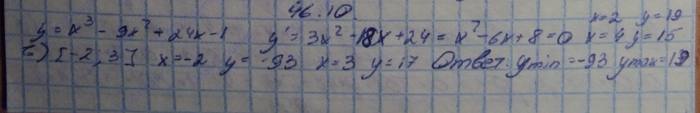 46.10.
x=2 y=19
y=x³-9x²+24x-1 y'=3x²-18x+24=x²-6x+8=0 x=4 y=15
б) [-2; 3] x=-2 y=-93 x=3 y=17 Ответ: ymin=-93 ymax=19